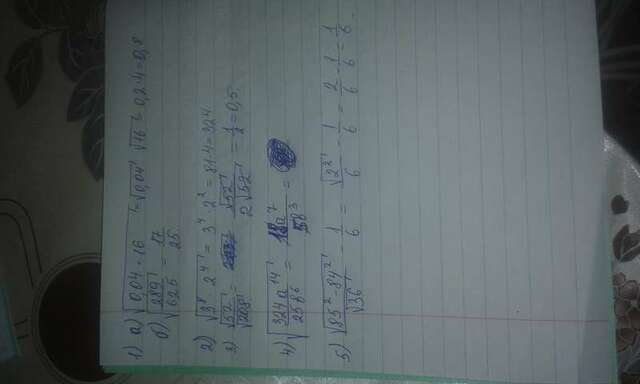 1) а) √0,04·16 = √0,04 √16 = 0,2·4 = 0,8
б) √289/625 = 17/25
2) √3⁸ 2⁴ = 3⁴ 2² = 81·4 = 324
3) √52/√208 = √52/2√52 = 1/2 = 0,5
4) √324a¹⁴/25b⁶ = 18a⁷/5b³ =
5) √85²-84²/√36 - 1/6 = √2²/6 - 1/6 = 2/6 - 1/6 = 1/6